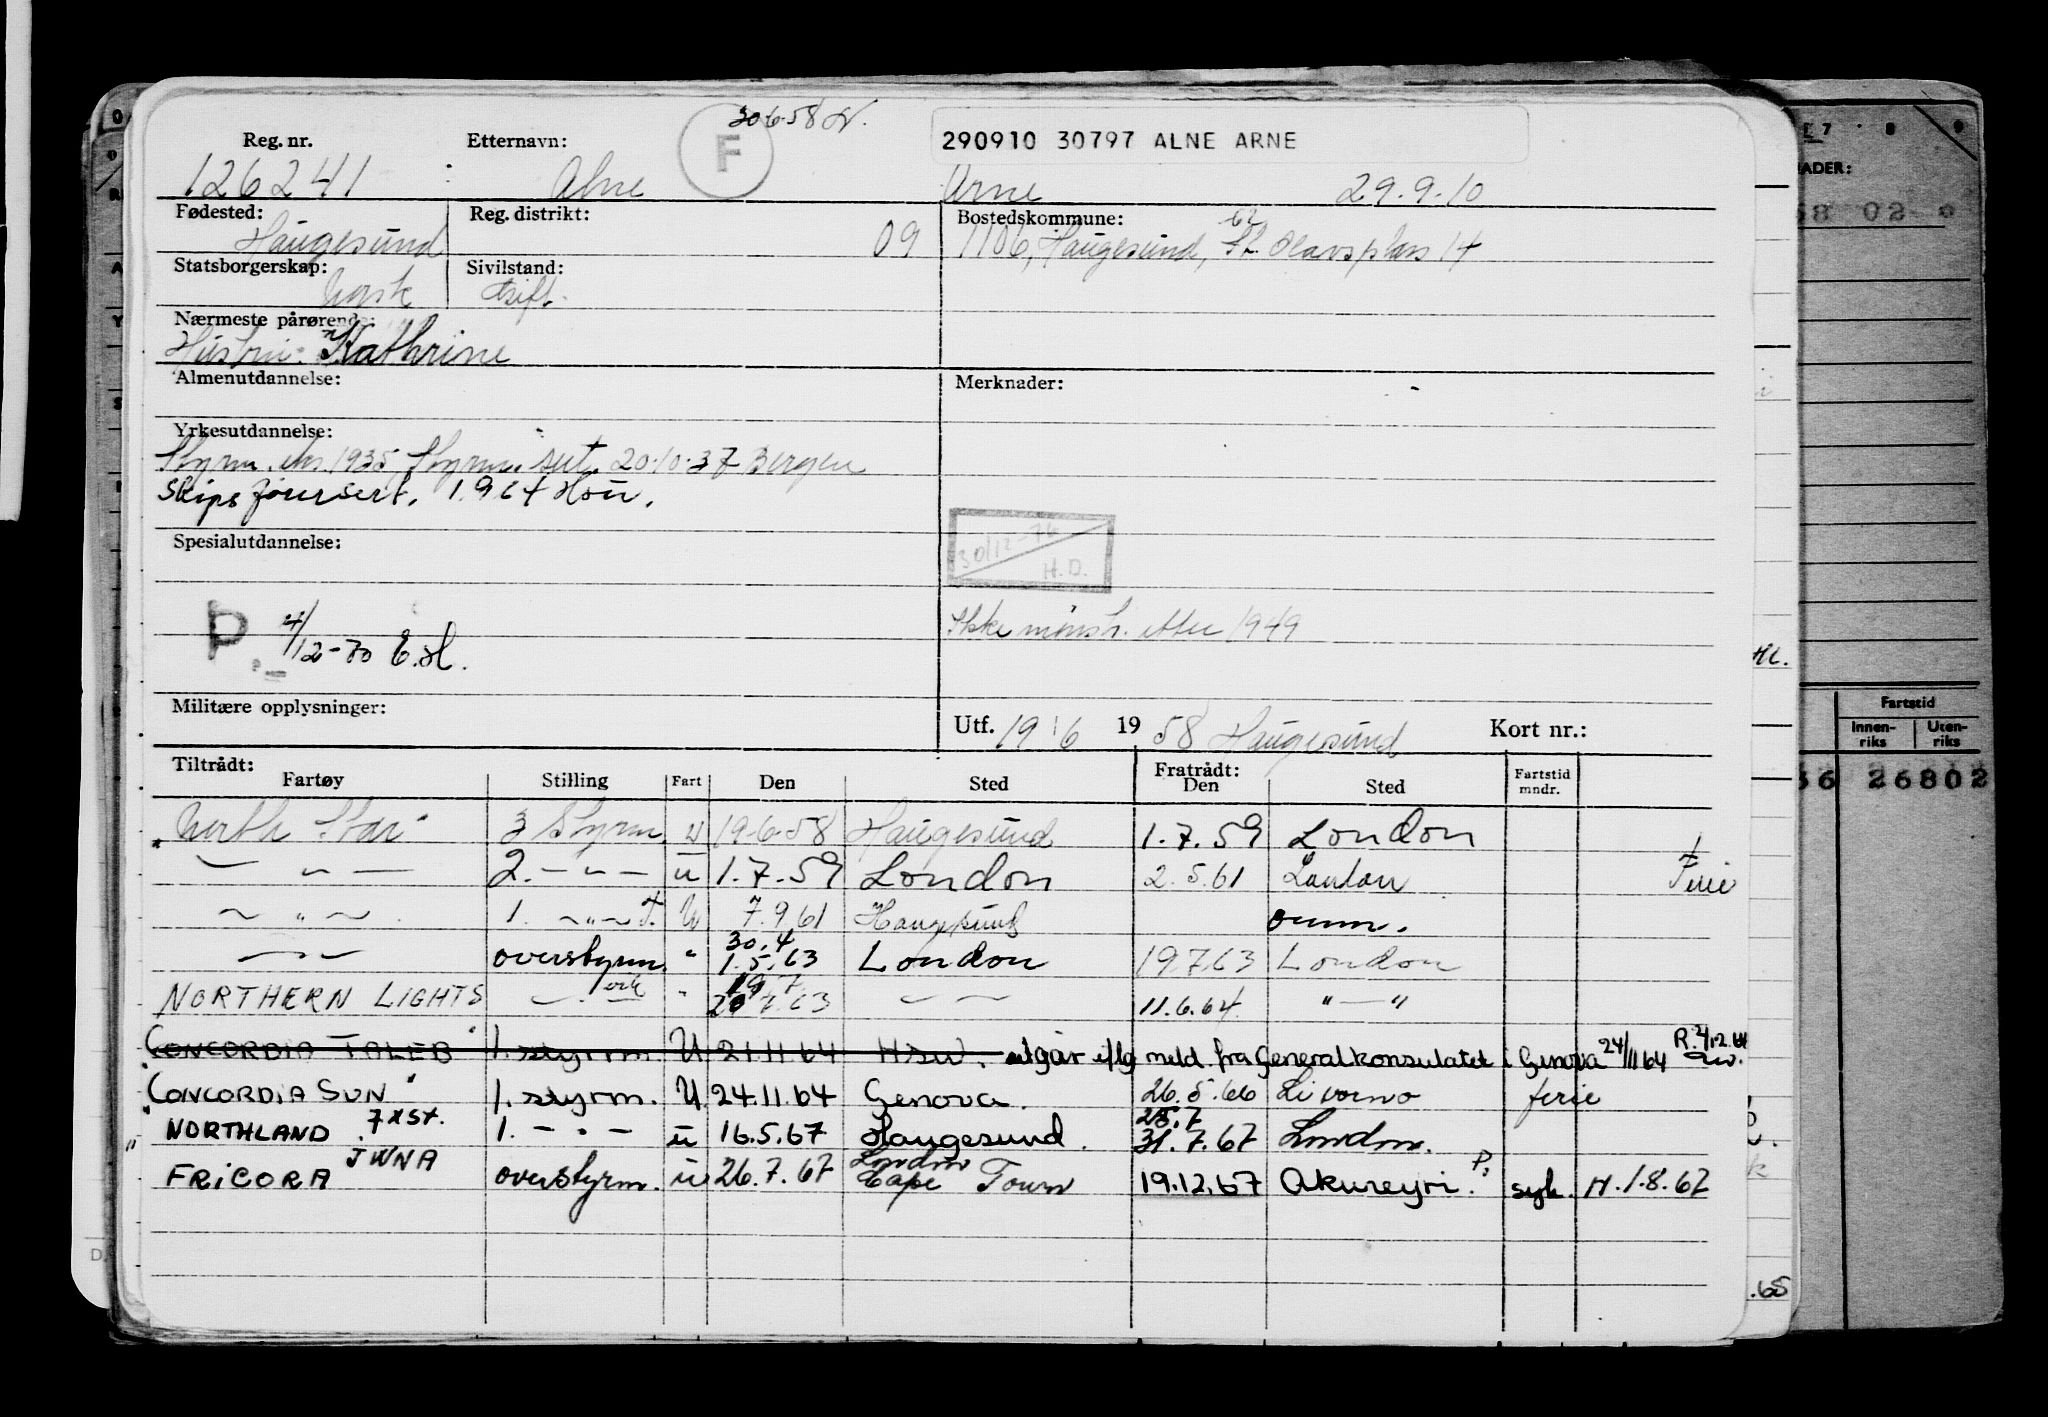 30.6.58
F
290910 30797 ALNE ARNE
Reg. nr. Etternavn:
126241 Alne Arne 29.9.10
Fødested: Reg. distrikt: Bostedskommune:
Haugesund 09 1106, Haugesund, St. Olavsplass 14
Statsborgerskap: Sivilstand:
Norsk Gift.
Nærmeste pårørende:
Hustru: Kathrine
Almenutdannelse: Merknader:
Yrkesutdannelse:
Styrm. eks. 1935 Styrm. sert. 20.10.37 Bergen
Skipsførersert. 1964 Hau.
Spesialutdannelse:
30/12-76
H.D.
P. 4/12-70 E.H.
Ikke mønstr. etter 1949
Militære opplysninger: Utf. 19/6 1958 Haugesund Kort nr.:
Tiltrådt: Fratrådt:
Fartøy Stilling Fart Den Sted Den Sted Fartstid mndr.
"North Star" 3 Styrm. U 19.6.58 Haugesund 1.7.59 London
— " — 2. — " — U 1.7.59 London 2.5.61 London Ferie
— " — 1. — " — U 7.9.61 Haugesund omm.
— " — overstyrm. " 30.4 1.5.63 London 19.7.63 London
NORTHERN LIGHTS — " — " 19.7. 63 — " — 11.6.64 " — "
"CONCORDIA TALEB" 1. styrm. U 21.11.64 Hsu. utgår iflg meld. fra Generalkonsulatet i Genova 24/11 64 R. 2/12.64
"CONCORDIA SUN" 1. styrm. U. 24.11.64 Genova. 26.5.66 Livorno ferie
"NORTHLAND" 1. — " — U 16.5.67 Haugesund. 31.7.67 London.
JWNA
FRICORA overstyrm. U 26.7.67 London Cape Town 19.12.67 Akureyri. P. syk. H. 1.8.67
ADER:
68 02
Fartstid
Innenriks Utenriks
56 26802
.65